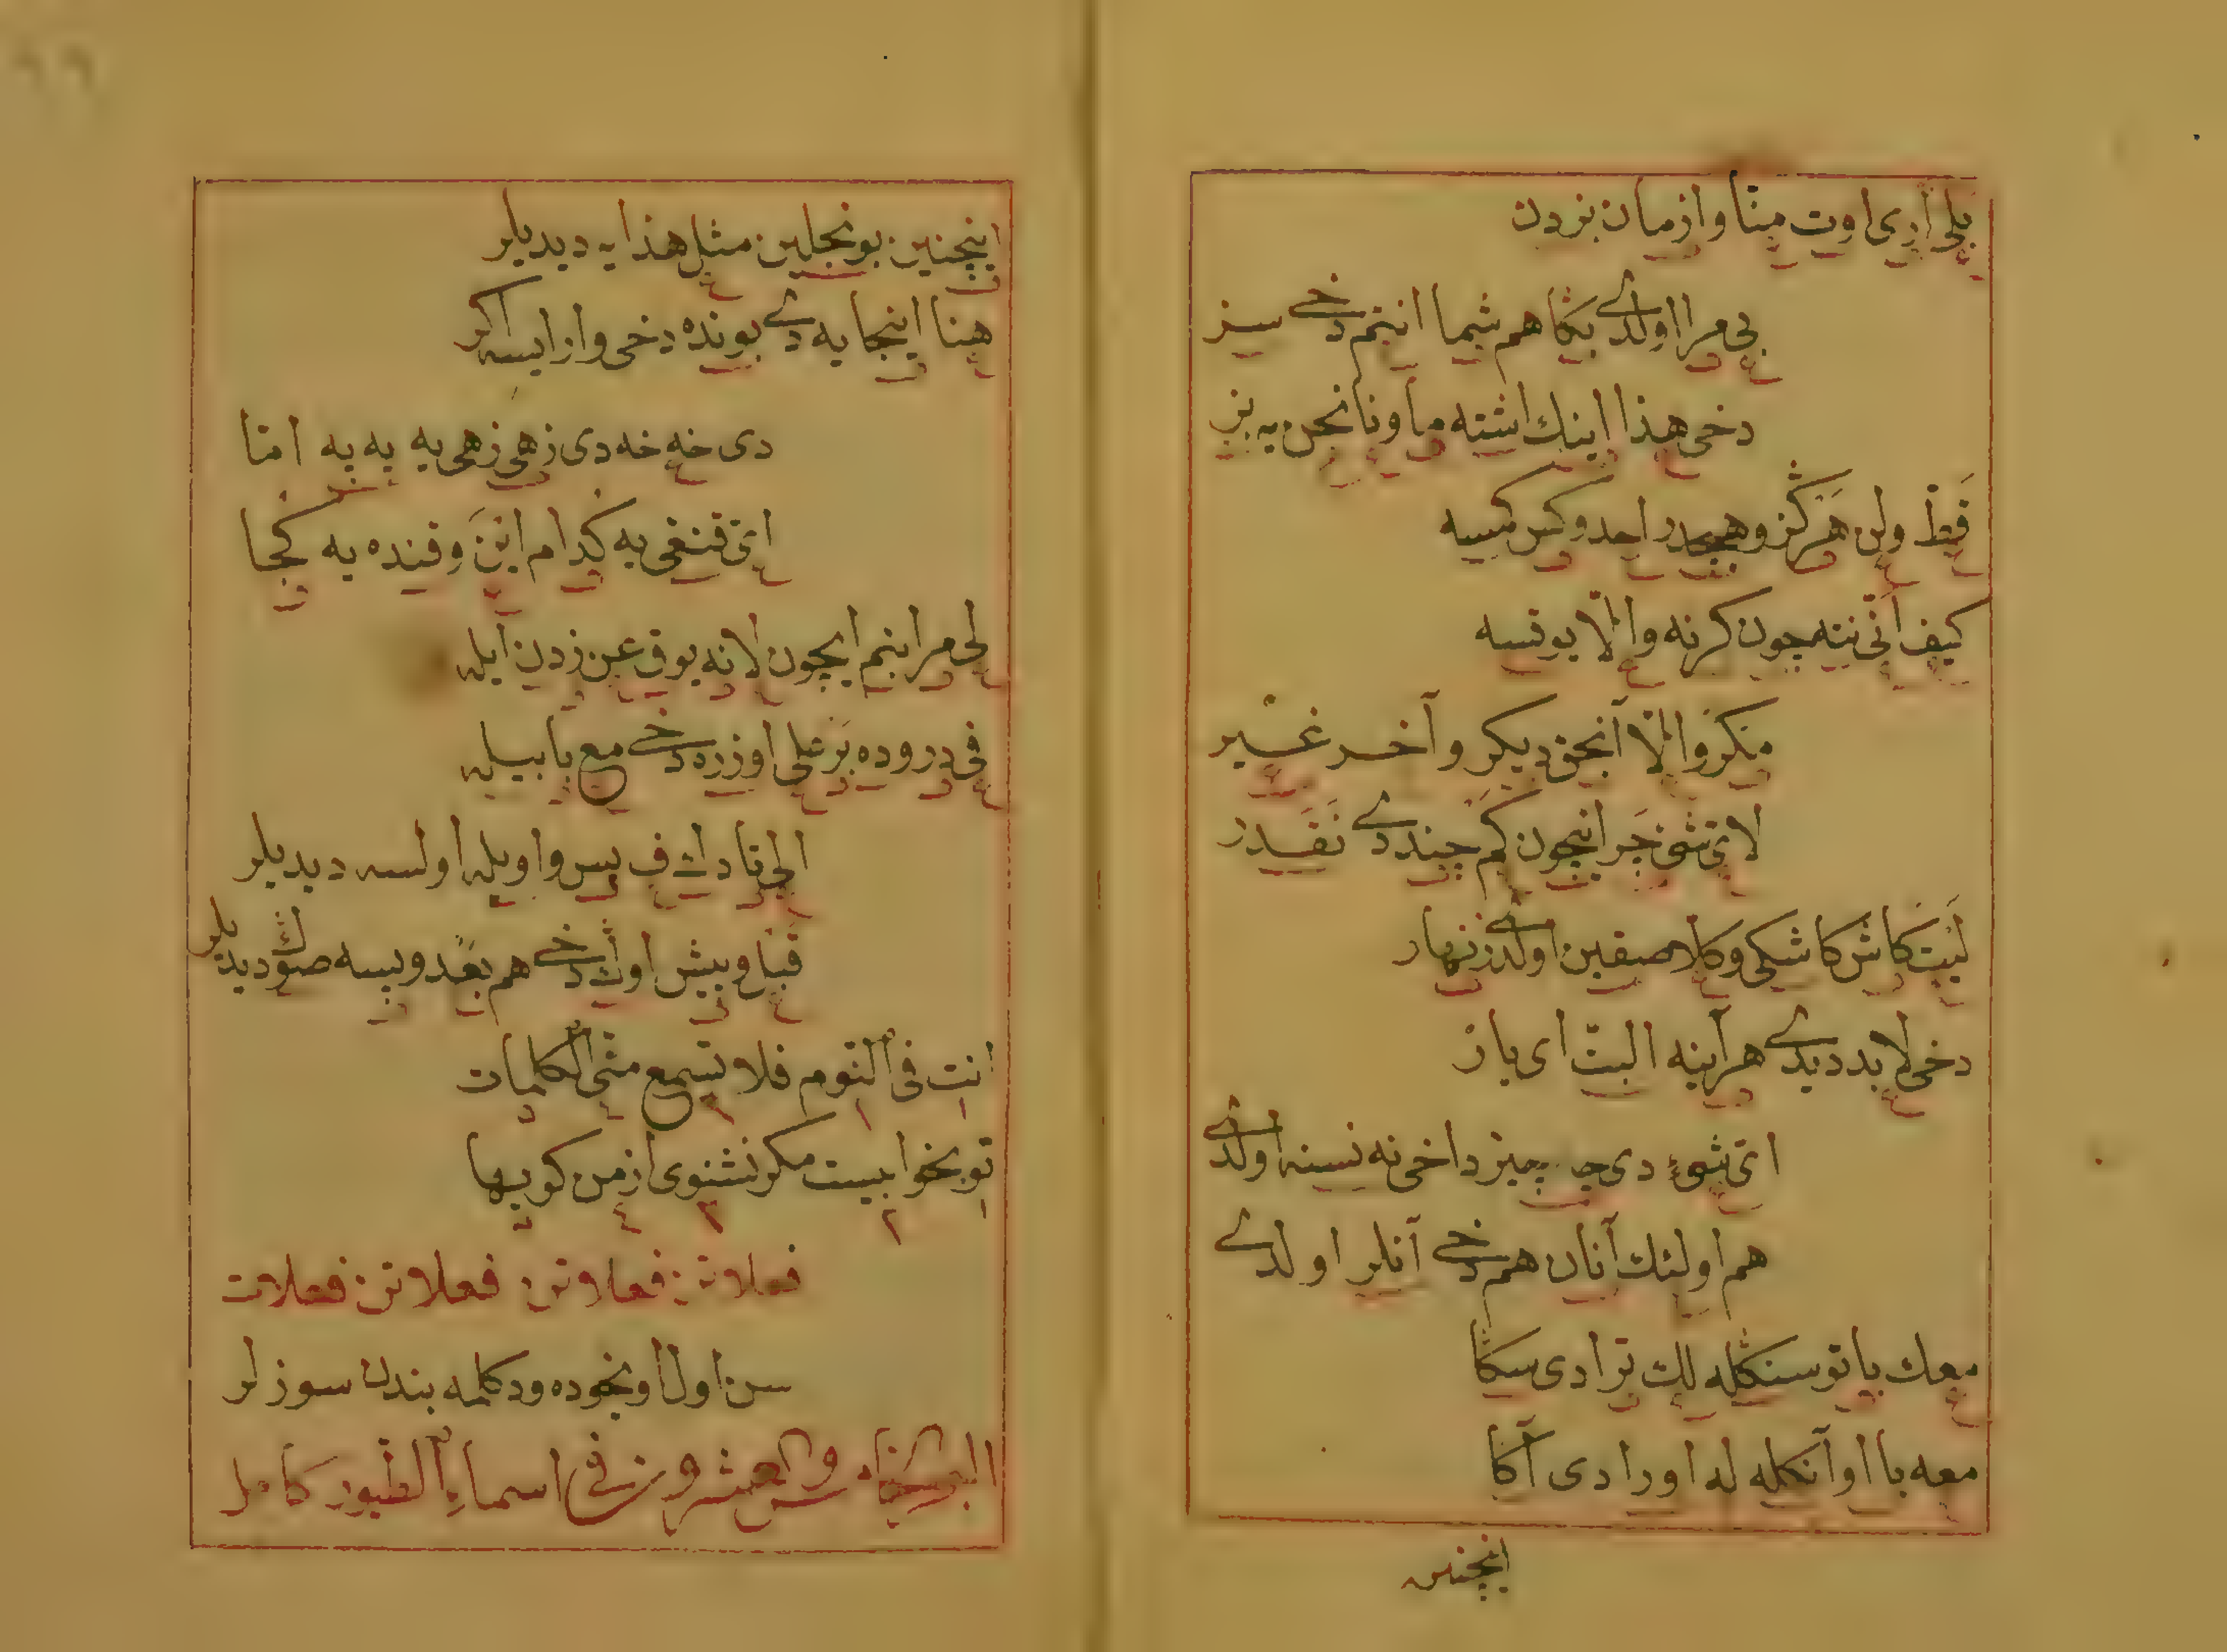 بلی اری اوت منا و ازمان بزدن
بی مرا اولدی بكا هم شما انتم دخی سز
دخی هذا اینك اشته ما و نا نحن یه بز
قط ولن هرگز و هیچ احد و كس كمسه
كیف انی نته چون كرنه و الا یوقسه
مگر و الا آنجق دیگر و آخر غیر
لای شی چرا نیچون كم چند دی نقدر
لیت كاش كاشكی و كلا صقین اولدی زنهار
دخی لابد دیدی هرآینه البت ای یار
ای شیء دی چه چیز داخی نه نسنه اولدی
هم اولئك آنان هم دخی آنلر اولدی
معك با تو سنكله لك ترا دی سكا
معه با او آنكله له اورا دی آكا
اینچنین
اینچنین بونجلین مثل هذا یه دیدیلر
هنا اینجا یه دی بونده دخی و ار ایسه اكر
دی خه خه دی زهی زهی یه به به امنا
ای قنغی یه كدام این و قنده یه كجا
لی مرا بنم ایچون لا نه یوق عن زدن ایله
فی در و ده بر علی اوزره دخی مع با بیله
الی تا دك ف پس و اویله اولسه دیدیلر
قبل و پیش اوك دخی هم بعد و پسه صوك دیدیلر
انت فی النوم فلا تسمع منی الكلمات
تو بخوابیست مكر نشنوی از من كویها
فعلاتن فعلاتن فعلاتن فعلات
سن اول اویخوده ودكلمه بندن سوزلر
القطعه والعشرون فی اسماء الطیور كامل